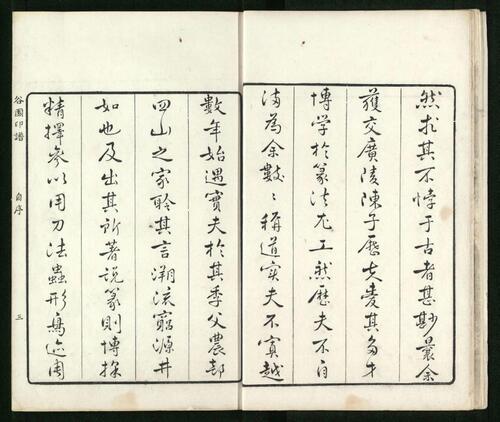 然求其不悖于古者甚尠最余
獲交廣陵陳子歷夫愛其多才
博学於篆法尤工然歷夫不自
滿為余數〻稱道實夫不實越
數年始遇實夫於其季父農部
四山之家聆其言溯流窮源井
如也及出其所著說篆則博採
精擇參以用刀法蟲形鳥迹周
谷園印譜
自序
三